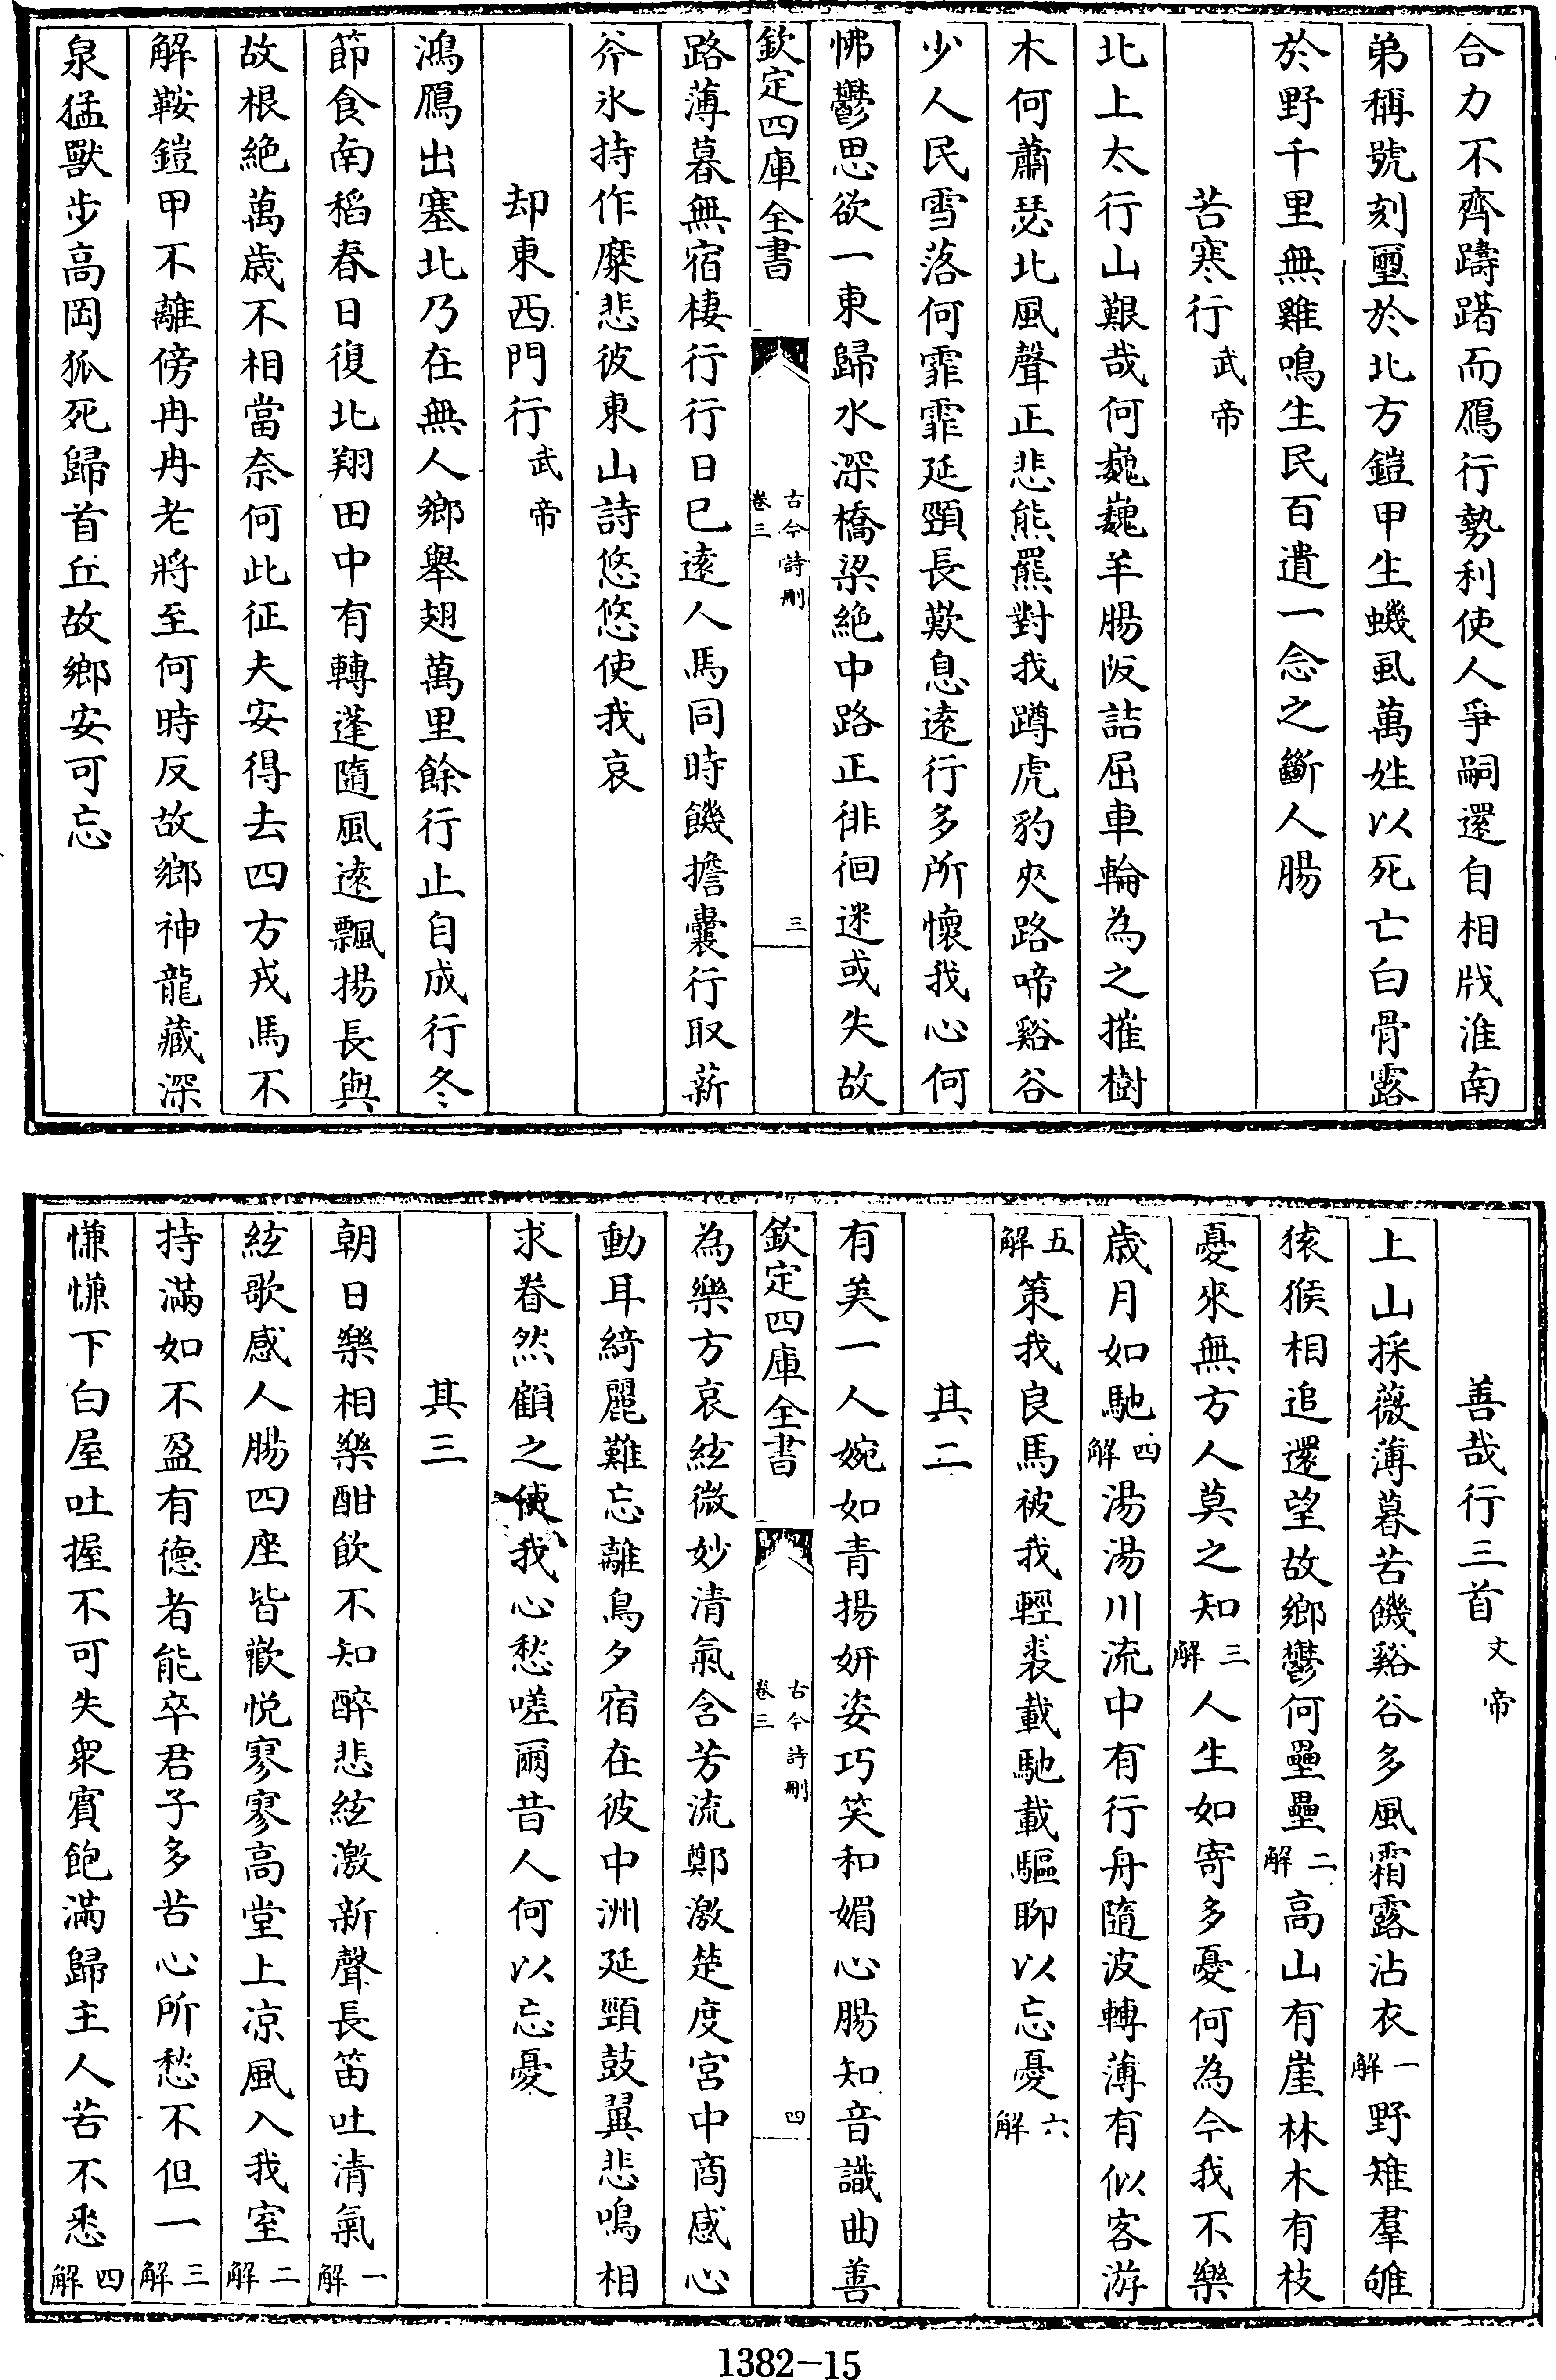 合力不齊躊躇而鴈行勢利使人爭嗣還自相戕淮南
弟稱號刻璽於北方鎧甲生蟣虱萬姓以死亡白骨露
於野千里無雞鳴生民百遺一念之斷人腸
苦寒行武帝
北上太行山艱哉何巍巍羊腸阪詰屈車輪為之摧樹
木何蕭瑟北風聲正悲熊羆對我蹲虎豹夾路啼谿谷
少人民雪落何霏霏延頸長歎息逺行多所懷我心何
怫鬱思欲一東歸水深橋梁絶中路正徘徊迷或失故
欽定四庫全書 古今詩刪 卷三 三
路薄暮無宿棲行行日已逺人馬同時饑擔囊行取薪
斧氷持作糜悲彼東山詩悠悠使我哀
却東西門行武帝
鴻鴈出塞北乃在無人鄉舉翅萬里餘行止自成行冬
節食南稻春日復北翔田中有轉蓬隨風逺飄揚長與
故根絶萬歳不相當奈何此征夫安得去四方戎馬不
解鞍鎧甲不離傍冉冉老將至何時反故鄉神龍藏深
泉猛獸步高岡狐死歸首丘故鄉安可忘
善哉行三首文帝
上山採薇薄暮苦饑谿谷多風霜露沾衣一解野雉羣雊
猿猴相追還望故鄉鬱何壘壘二解高山有崖林木有枝
憂來無方人莫之知三解人生如寄多憂何為今我不樂
歳月如馳四解湯湯川流中有行舟隨波轉薄有似客游
五解策我良馬被我輕裘載馳載驅聊以忘憂六解
其二
有美一人婉如青揚妍姿巧笑和媚心腸知音識曲善
欽定四庫全書 古今詩刪 卷三 四
為樂方哀絃微妙清氣含芳流鄭激楚度宮中商感心
動耳綺麗難忘離鳥夕宿在彼中洲延頸鼓翼悲鳴相
求眷然顧之使我心愁嗟爾昔人何以忘憂
其三
朝日樂相樂酣飲不知醉悲絃激新聲長笛吐清氣一解
絃歌感人腸四座皆歡悅寥寥高堂上凉風入我室二解
持滿如不盈有德者能卒君子多苦心所愁不但一三解
慊慊下白屋吐握不可失衆賓飽滿歸主人苦不悉四解
1382-15